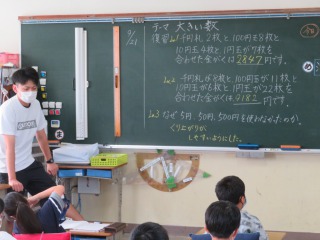 9/21
テーマ 大きい数
復習 no1 千円札2枚と100円玉8枚と
10円玉4枚と1円玉が7枚を
合わせた金がくは2847円です。
no2 千円札が8枚と100円が11枚と
10円玉が6枚と1円玉が22枚を
合わせた金がくは9182円です。
no3 なぜ5円、50円、500円を使わなかったのか。
くり上がりが
しやすいようにした。
め